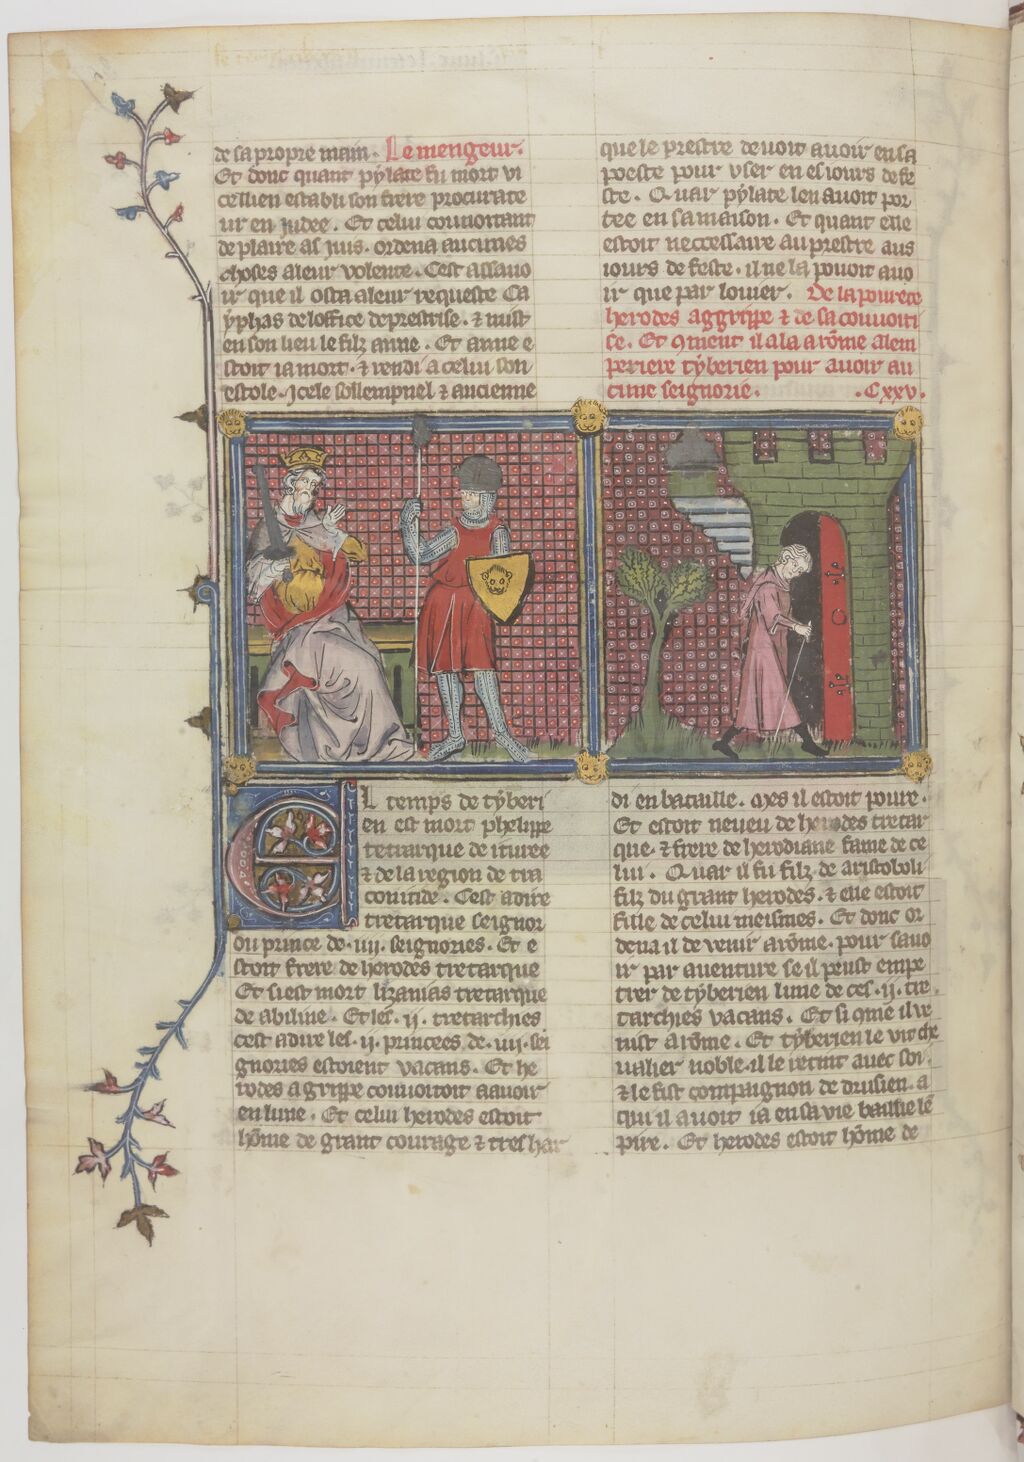 de sa propre main. Le mengeur.
Et donc quant pylate fu mort vi
cellien establi son frere procurate
ur en judee. Et celui couuoitant
de plaire as juis. ordena aucunes
choses a leur volente. Cest assauo
ir que il osta a leur requeste Ca
yphas de loffice de prestrise. ⁊ mist
en son lieu le filz anne. Et anne e
stoit ia mort. ⁊ rendi a celui son
estole. Icele sollempnel ⁊ ancienne
que le prestre deuoit auoir en sa
poeste pour vser en es iours de fe
ste. Quar pylate len auoit por
tee en sa maison. Et quant elle
estoit neccessaire au prestre aus
iours de feste. il ne la pouoit auo
ir que par louier. De la pourete
herodes aggrippe ⁊ de sa couuoiti
se. Et cment il ala a rōme a lem
periere tyberien pour auoir au
cune seignorie. .Cxxv.
El temps de tyberi
en est mort phelippe
tetrarque de ituree
⁊ de la region de tra
conitide. Cest a dire
tretarque seignor
ou prince de .iiii. seignories. Et e
stoit frere de herodes tretarque
Et si est mort lizanias tretarque
de abiline. Et les .ii. tretarchies
cest a dire les .ii. princees de .iiii. sei
gnories estoient vacans. Et he
rodes agrippe couuoitoit a auoir
en lune. Et celui herodes estoit
hōme de grant courage ⁊ tres har
di en bataille. Mes il estoit poure.
Et estoit neueu de herodes tretar
que. ⁊ frere de herodiane fame de ce
lui. Quar il fu filz de aristoboli
filz du grant herodes. ⁊ elle estoit
fille de celui meismes. Et donc or
dena il de venir a rōme. pour sauo
ir par auenture se il peust empe
trer de tyberien lune de ces .ii. tre.
tarchies vacans. Et si cme il ve
nist a rōme. Et tyberien le vit che
ualier noble. il le retint auec soi.
⁊ le fist compaignon de drusien. a
qui il auoit ia en sa vie baillie lē
pire. Et herodes estoit hōme de